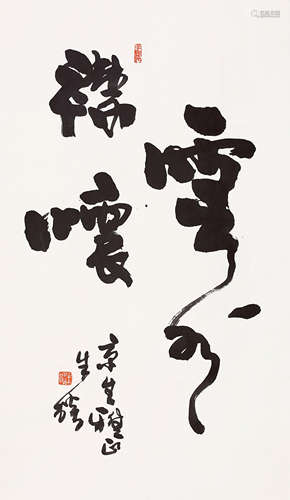 雲水
襟懷
京生雅正
生